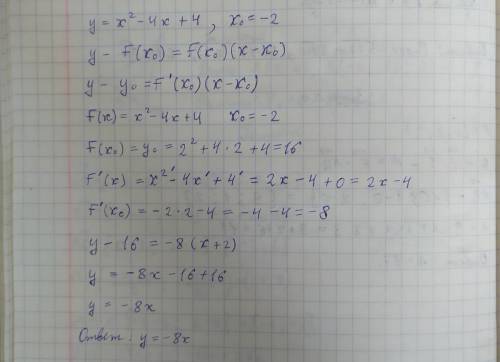 y = x² - 4x + 4 , x₀ = -2
y - F(x₀) = F(x₀)(x - x₀)
y - y₀ = F'(x₀)(x - x₀)
F(x) = x² - 4x + 4 x₀ = -2
F(x₀) = y₀ = 2² + 4 · 2 + 4 = 16
F'(x) = x²' - 4x' + 4' = 2x - 4 + 0 = 2x - 4
F'(x₀) = -2 · 2 - 4 = -4 - 4 = -8
y - 16 = -8(x + 2)
y = -8x - 16 + 16
y = -8x
Ответ: y = -8x